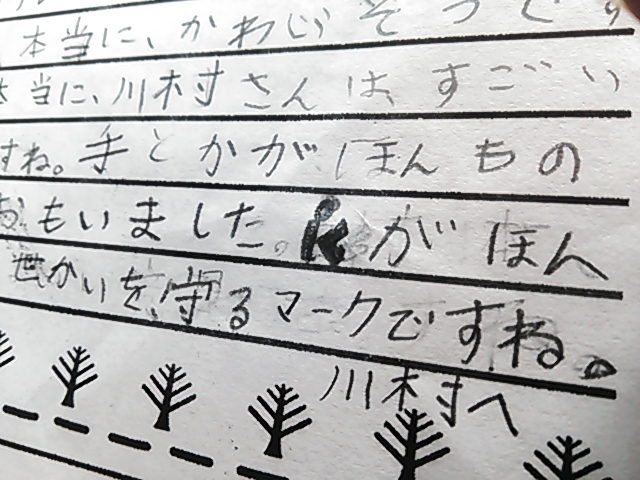 本当に、かわじりそうで
本当に、川村さんは、すごい
すね。手とかがほんもの
おもいました。Kがほん
世かいを、守るマークですね。
川村へ